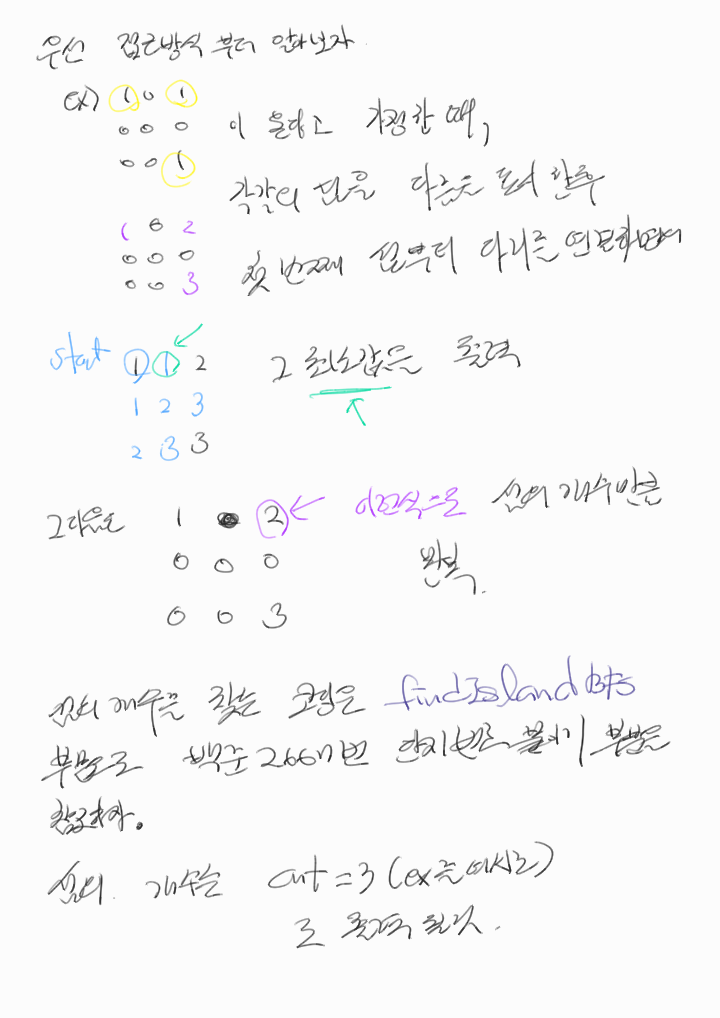 우선 접근방식 부터 알아보자
ex) 1 0 1
0 0 0 이 온다고 가정할 때,
0 0 1
각각의 섬을 다른곳 둬서 한후
1 0 2
0 0 0 첫 번째 섬부터 다리를 연결하면서
0 0 3
start 1 1 2 그 최소값을 출력
1 2 3
2 3 3
그다음도 1 2 이런식으로 섬의 개수만큼
0 0 0 반복.
0 0 3
섬의 개수를 찾는 코딩은 findIslandBFS
부분으로 백준 2667번 단지번호 붙이기 부분을
참고하자.
섬의 개수는 cnt = 3 (ex를 예시로)
로 출력 된다.